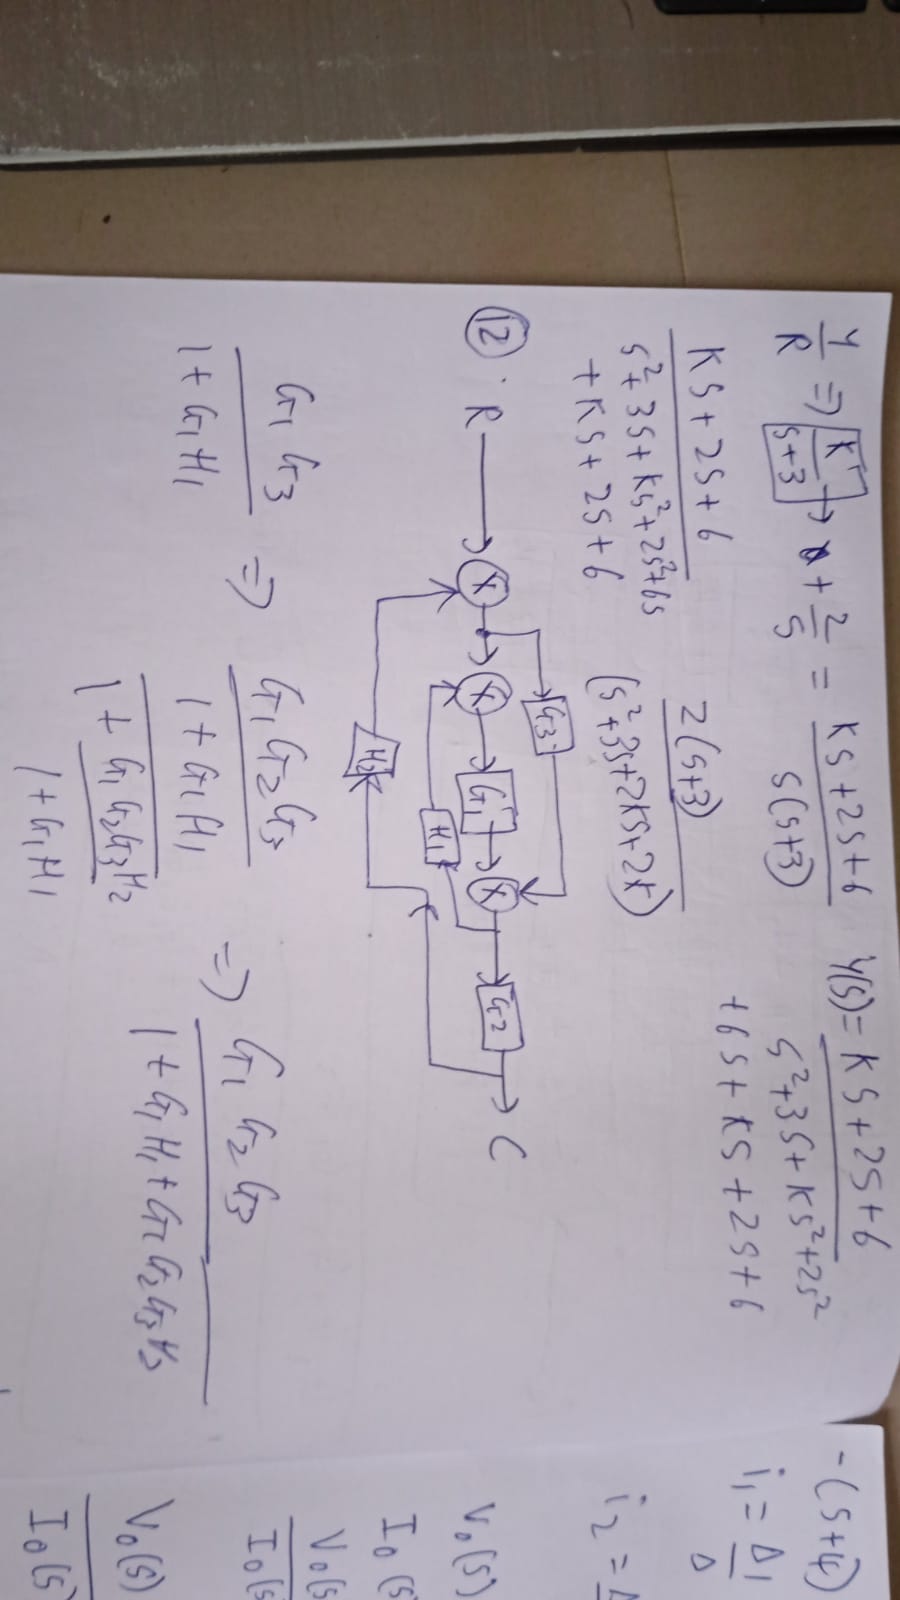 Y/R ⇒ K/(s+3) → + 2/s = (KS+2S+6)/(S(S+3))
Y(S) = (KS+2S+6)/(S²+3S+KS²+2S²+6S+KS+2S+6)
(KS+2S+6)/(S²+3S+KS²+2S²+6S+KS+2S+6)
2(S+3)/(S²+3S+2KS+2K)
12. R X X G1 X G2 C
G3
H1
H2
G1 G3/(1+G1H1) ⇒ (G1G2G3/(1+G1H1))/(1+G1G2G3H2/(1+G1H1)) ⇒ G1 G2 G3/(1+G1H1+G1G2G3H2)
-(S+4)
i1 = Δ1/Δ
i2 =
V0(S)
I0(S)
V0(S
I0(S
V0(S)
I0(S)